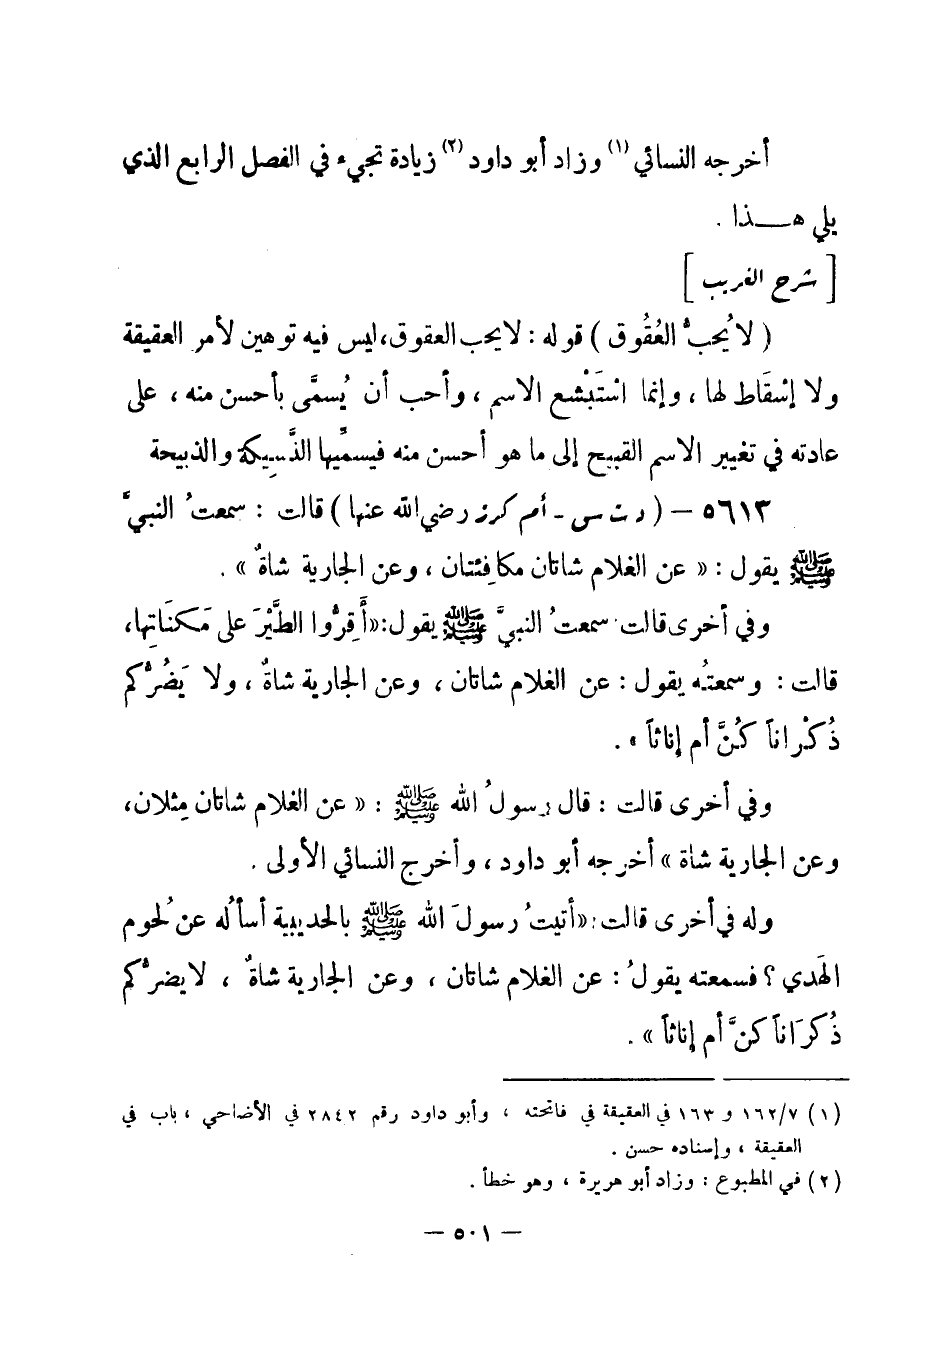 أخرجه النسائي (١) وزاد أبو داود (٢) زيادة تجيء في الفصل الرابع الذي
يلي هــذا .
[ شرح الغريب ]
( لا يُحبُّ العُقُوق ) قوله : لا يحب العقوق، ليس فيه توهين لأمر العقيقة
ولا إسْقَاط لها ، وإنما اسْتَبْشع الاسم ، وأحب أن يُسمَّى بأحسن منه ، على
عادته في تغيير الاسم القبيح إلى ما هو أحسن منه فيسمِّيها النَّسِيكة والذبيحة
٥٦١٣ – ( د ت س - أم كرز رضي الله عنها ) قالت : سمعتُ النبيَّ
ﷺ يقول : « عن الغلام شاتان مكافِئتان ، وعن الجارية شاةٌ » .
وفي أخرى قالت سمعتُ النبيَّ ﷺ يقول: «أَقِرُّوا الطَّيْرَ على مَكنَاتِها،
قالت : وسمعتُه يقول : عن الغلام شاتان ، وعن الجارية شاةٌ ، ولا يَضُرُّكم
ذُكْراناً كُنَّ أم إناثاً » .
وفي أخرى قالت : قال رسولُ الله ﷺ : « عن الغلام شاتان مِثلان،
وعن الجارية شاة » أخرجه أبو داود ، وأخرج النسائي الأولى .
وله في أخرى قالت : «أتيتُ رسولَ الله ﷺ بالحديبية أسألُه عن لُحوم
الهَدي ؟ فسمعته يقولُ : عن الغلام شاتان ، وعن الجارية شاةٌ ، لا يضرُّكم
ذُكرَاناً كنَّ أم إناثاً » .
(١) ١٦٢/٧ و ١٦٣ في العقيقة في فاتحته ، وأبو داود رقم ٢٨٤٢ في الأضاحي ، باب في
العقيقة ، وإسناده حسن .
(٢) في المطبوع : وزاد أبو هريرة ، وهو خطأ .
– ٥٠١ –